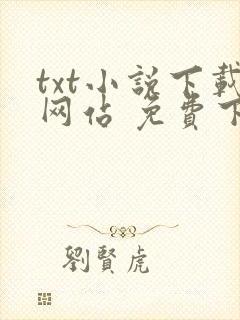 txt小説下載
网站 免費下
劉賢虎